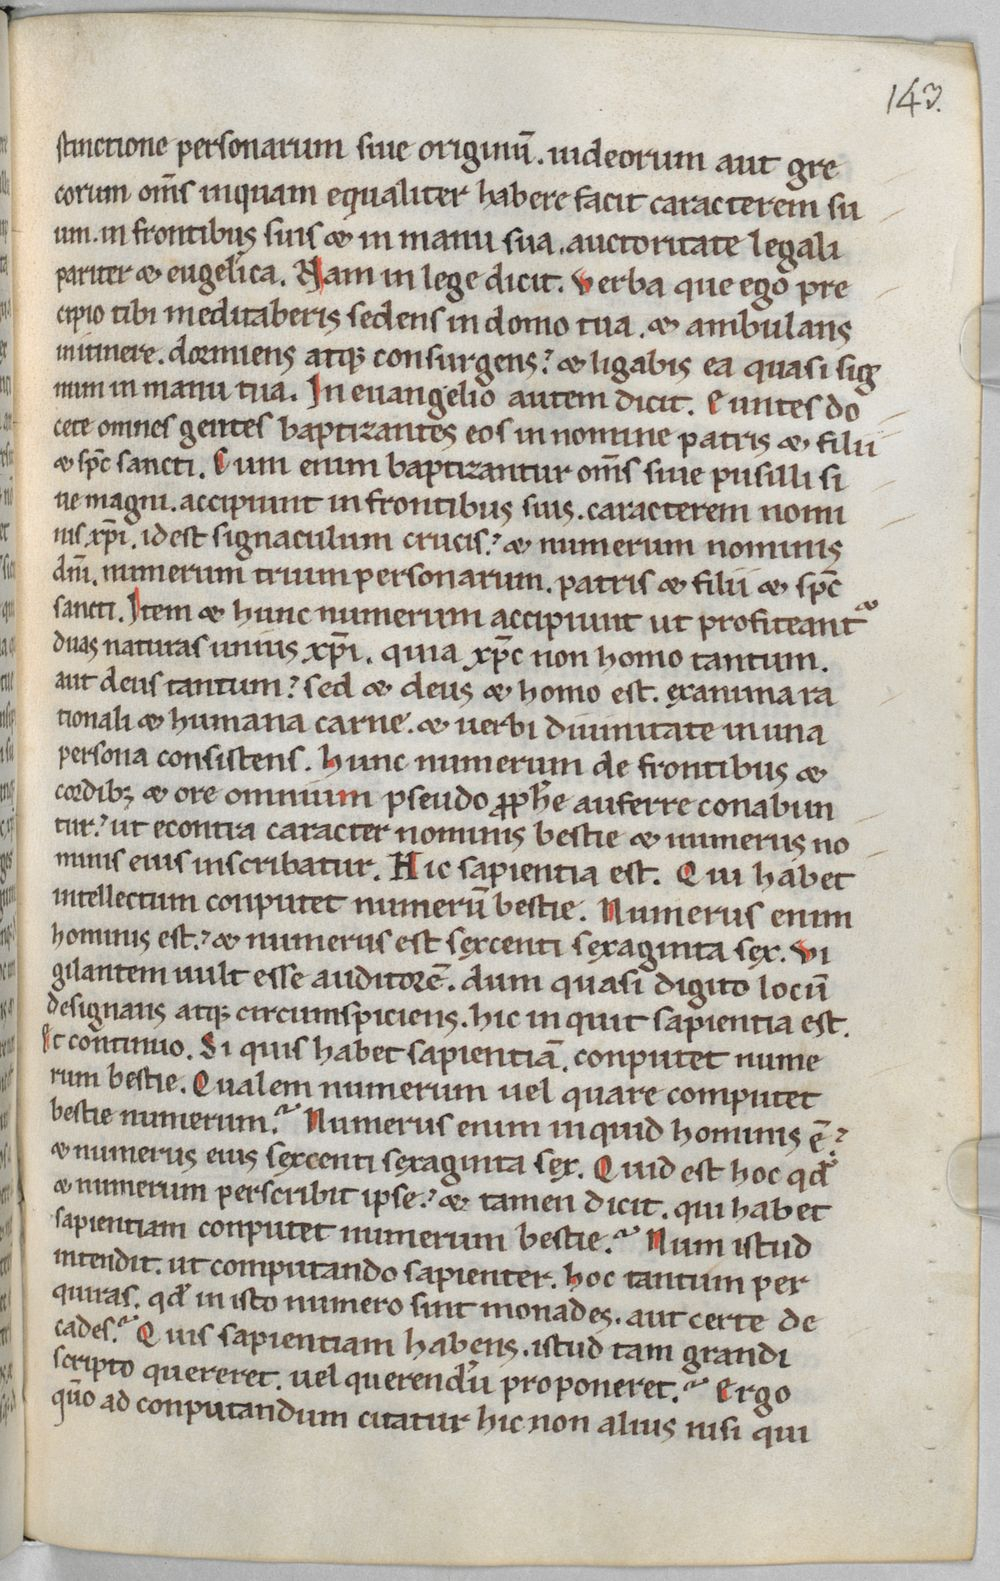 143.
stinctione personarum siue originū. iudeorum aut gre
corum om̅s inquam equaliter habere facit caracterem su
um. in frontibus suis & in manu sua. auctoritate legali
pariter & eugelica. Nam in lege dicit. Verba que ego pre
cipio tibi meditaberis sedens in domo tua. & ambulans
in itinere. dormiens atq; consurgens? & ligabis ea quasi sig
num in manu tua. In euangelio autem dicit. Euntes do
cete omnes gentes baptizantes eos in nomine patris & filii
& sp̅c sancti. Cum enim baptizantur om̅s siue pusilli si
ue magni. accipiunt in frontibus suis. caracterem nomi
nis xp̅i. id est signaculum crucis? & numerum nominis
dn̅i. numerum trium personarum. patris & filii & sp̅c
sancti. Item & hunc numerum accipiunt ut profiteant᷑
duas naturas unius xp̅i. quia xp̅c non homo tantum.
aut deus tantum? sed & deus & homo est. ex anima ra
tionali & humana carne. & uerbi diuinitate in una
persona consistens. Hunc numerum de frontibus &
cordib; & ore omnium pseudo ꝓph̅e auferre conabun
tur? ut econtra caracter nominis bestie & numerus no
minis eius inscribatur. Hic sapientia est. Qui habet
intellectum conputet numerū bestie. Numerus enim
hominis est? & numerus est sexcenti sexaginta sex. Vi
gilantem uult esse auditorē. dum quasi digito locū
designans atq; circumspiciens. hic inquit sapientia est.
Et continuo. Si quis habet sapientiā. conputet nume
rum bestie. Qualem numerum uel quare computet
bestie numerum? Numerus enim inquid hominis ē?
& numerus eius sexcenti sexaginta sex. Quid est hoc qd̕
& numerum perscribit ipse? & tamen dicit. qui habet
sapientiam conputet numerum bestie? Num istud
intendit. ut computando sapienter. hoc tantum per
quiras. qd̕ in isto numero sint monades. aut certe de
cades? Quis sapientiam habens. istud tam grandi
scripto quereret. uel querendū proponeret? Ergo
qūo ad conputandum citatur hic non alius nisi qui